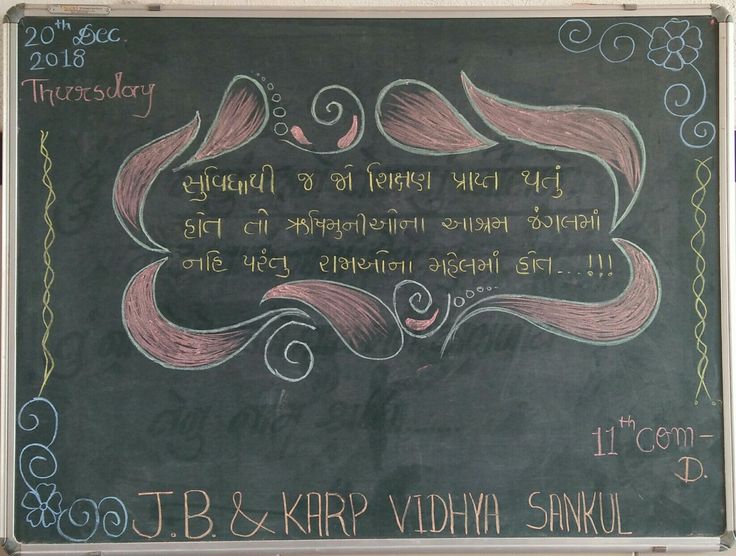 20th Dec.
2018
Thursday
સુવિધાથી જ જો શિક્ષણ પ્રાપ્ત થતું
હોત તો ઋષિમુનીઓના આશ્રમ જંગલમાં
નહિ પરંતુ રાજાઓના મહેલમાં હોત....!!!
11th com-
D.
J.B. & KARP VIDHYA SANKUL